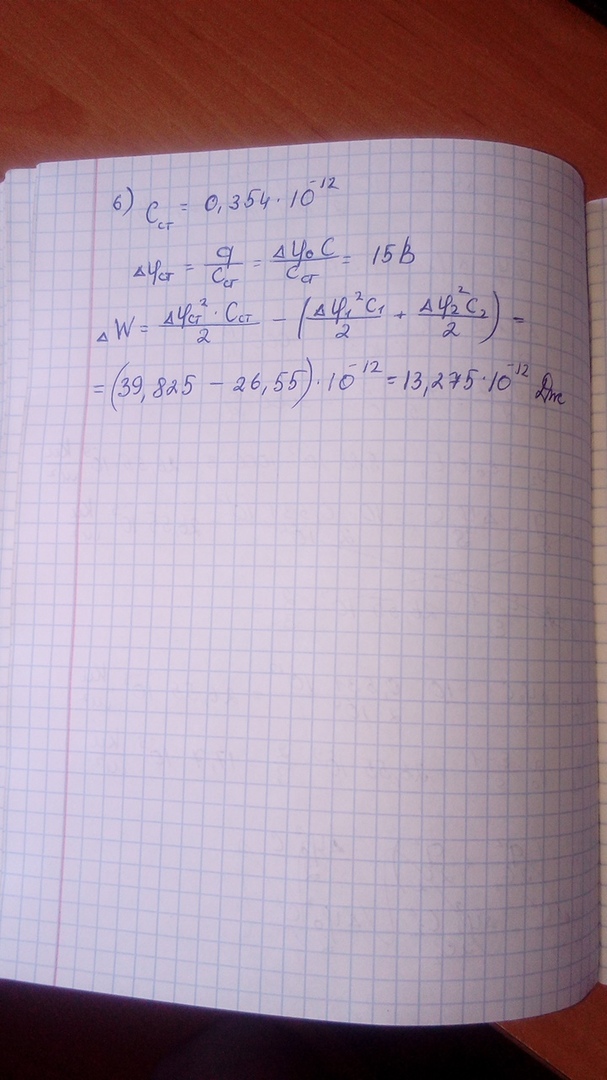 6) Cст = 0,354·10⁻¹²
Δφст = q/Cст = Δφ₀C/Cст = 15В
ΔW = Δφст²·Cст/2 − (Δφ₁²C₁/2 + Δφ₂²C₂/2) =
= (39,825 − 26,55)·10⁻¹² = 13,275·10⁻¹² Дж